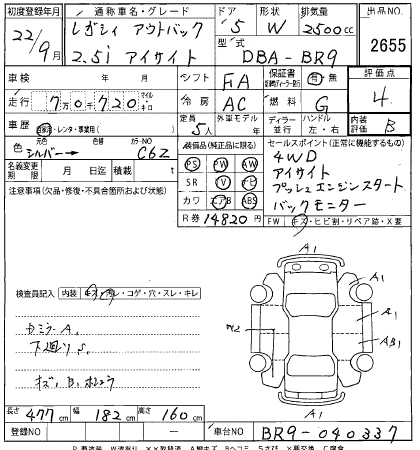 初度登録年月 通称車名・グレード ドア 形状 排気量 出品NO
22/9月 レガシィ アウトバック 5 W 2500cc
2.5i アイサイト 型式 DBA-BR9 2655
車検 年 月 シフト FA 保証書 有 無 評価点
走行 7万0千720 マイル キロ 冷房 AC 燃料 G 4
車歴 自家用・レンタ・事業用( ) 定員 5人 外車モデル 年 ディーラー 並行 ハンドル 左・右 内装評価 B
色 元色 シルバー → 色替 カラーNO C6Z
名義変更期限 月 日迄 積載 t
装備品(純正品に限る)
PS PW AW
SR TV ナビ
カワ エアB ABS
R券 14820円
セールスポイント(正常に機能するもの)
4WD
アイサイト
プッシュエンジンスタート
バックモニター
FW キズ・ヒビ割・リペア跡・X要
注意事項(欠品・修復・不具合箇所および状態)
検査員記入 内装 キズ・汚レ・コゲ・穴・スレ・キレ
A1
A1
A1
AB1
W2
A1
カミラーA.
下廻りS.
キズ、B、ホシュウ
長さ 477cm 幅 182cm 高さ 160cm
登録NO 車台NO BR9-040337